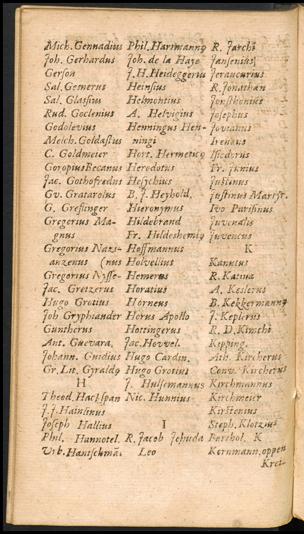 Mich. Gennadius
Joh. Gerhardus
Gerson
Sal. Gesnerus
Sal. Glassius
Rud. Goclenius
Godolevius
Melch. Goldastus
C. Goldmeier
Goropius Becanus
Jac. Gothofredus
Gv. Gratarolus
G. Greflinger
Gregorius Ma-
gnus
Gregorius Nazi-
anzenus (nus
Gregorius Nysse-
Jac. Gretzerus
Hugo Grotius
Joh Gryphiander
Guntherus
Ant. Guevara,
Johann. Guidius
Gr. Lil. Gyraldꝯ
H
Theod. Hackspan
J. J. Hainlinus
Joseph Hallius
Phil. Hannotel.
Vrb. Hantschman
Phil. Hartmannꝯ
Joh. de la Haye
J. H. Heideggerus
Heinsius
Helmontius
A. Helvigius
Henningus Hen-
ningi
Hort. Hermeticꝯ
Herodotus
Hesychius
B. J. Heyhold.
Hieronymus
Hildebrand
Fr. Hildeshemiꝯ
Hoffmannus
Holvellius
Hemerus
Horatius
Horneus
Horus Apollo
Hottingerus
Jac. Hovvel.
Hugo Cardin.
Hugo Grotius
J. Hulsemannus
Nic. Hunnius
I
R. Jacob Jehuda
Leo
R. Jarchi
Jansenius
Jeraucurius
R. Jonathan
Jonstonius
Josephus
Jovianus
Ireneus
Isidorus
Fr. Junius
Justinus
Justinus Martyr.
Ivo Parisinus
Juvenalis
Juvencus
K
Kanutus
R. Katina
A. Keslerus
B. Kekkermannꝯ
J. Keplerus
R. D. Kimchi
Kipping.
Ath. Kircherus
Conr. Kircherus
Kirchmannus
Kirchmeier
Kirstenius
Steph. Klotzius
Barthol. K
Kornmann, oppen
Kret-